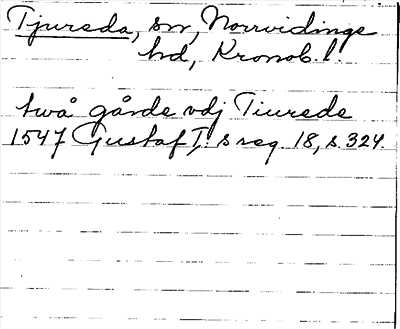 Tjureda, sn, Norrvidinge
hd, Kronob. l.
två gårde vdj Tiurede
1547 Gustaf I:s reg. 18, s. 324.